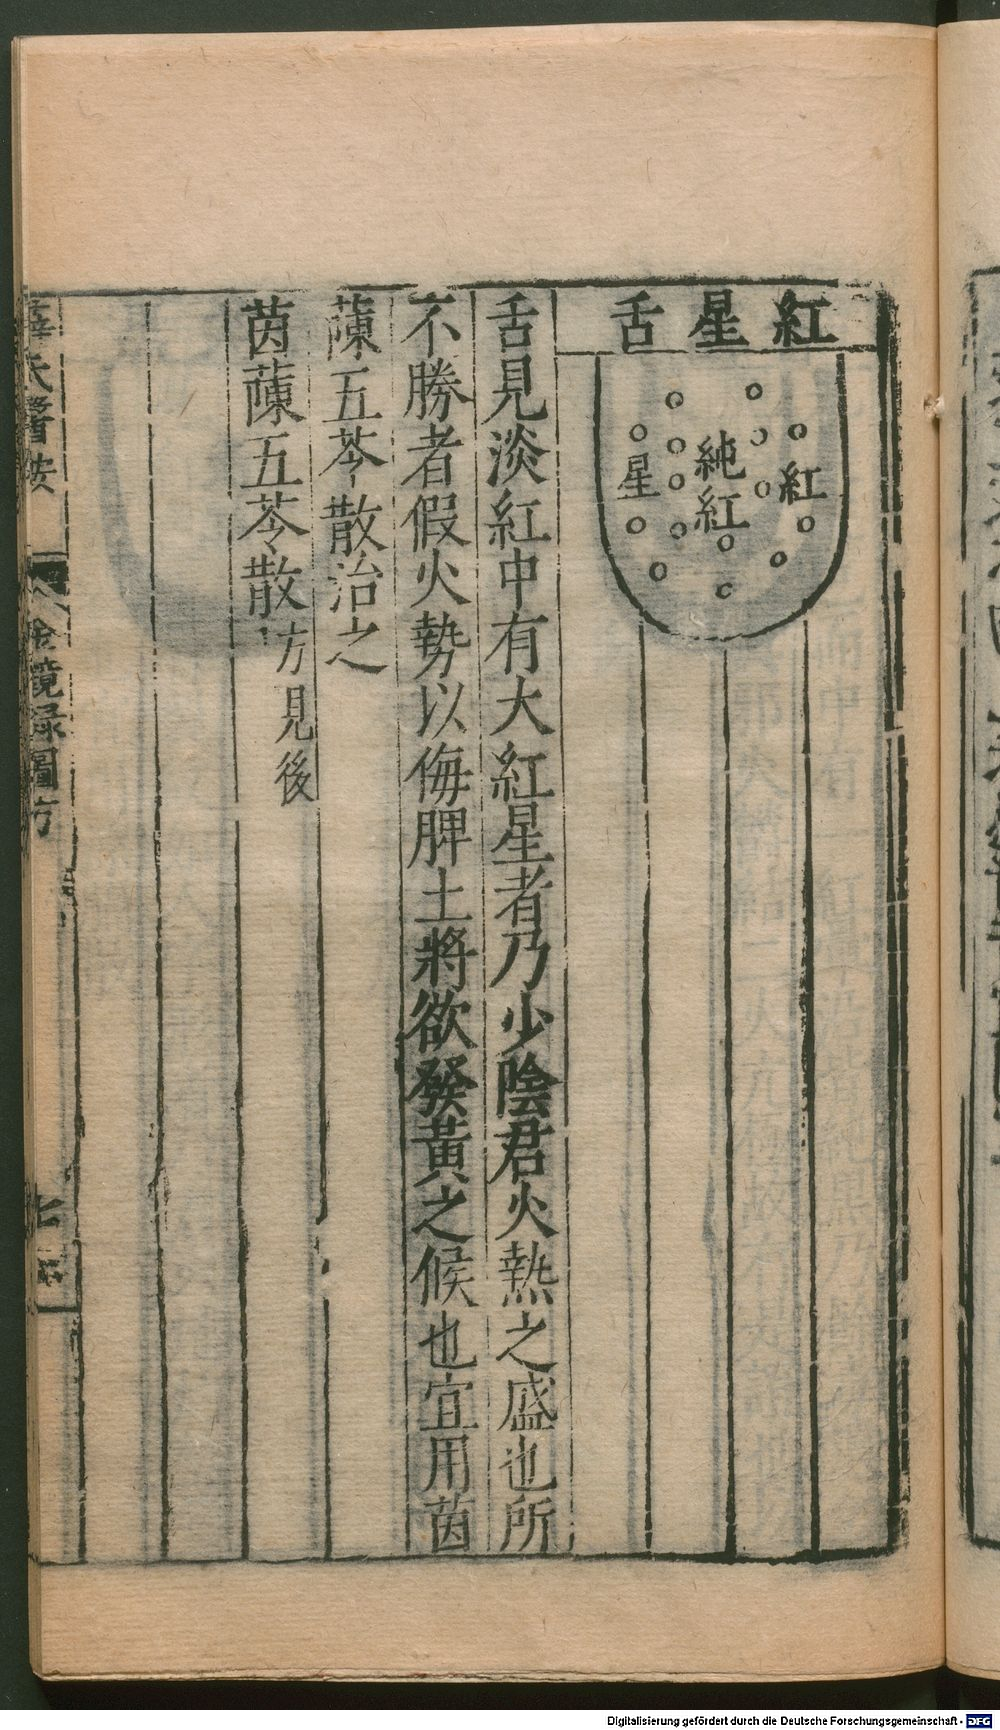 紅星舌
紅
純紅
星
舌見淡紅中有大紅星者乃少陰君火熱之盛也所
不勝者假火勢以侮脾土將欲發黃之候也宜用茵
蔯五苓散治之
茵蔯五苓散方見後
薛氏醫按
金鏡錄圖方
Digitalisierung gefördert durch die Deutsche Forschungsgemeinschaft - DFG